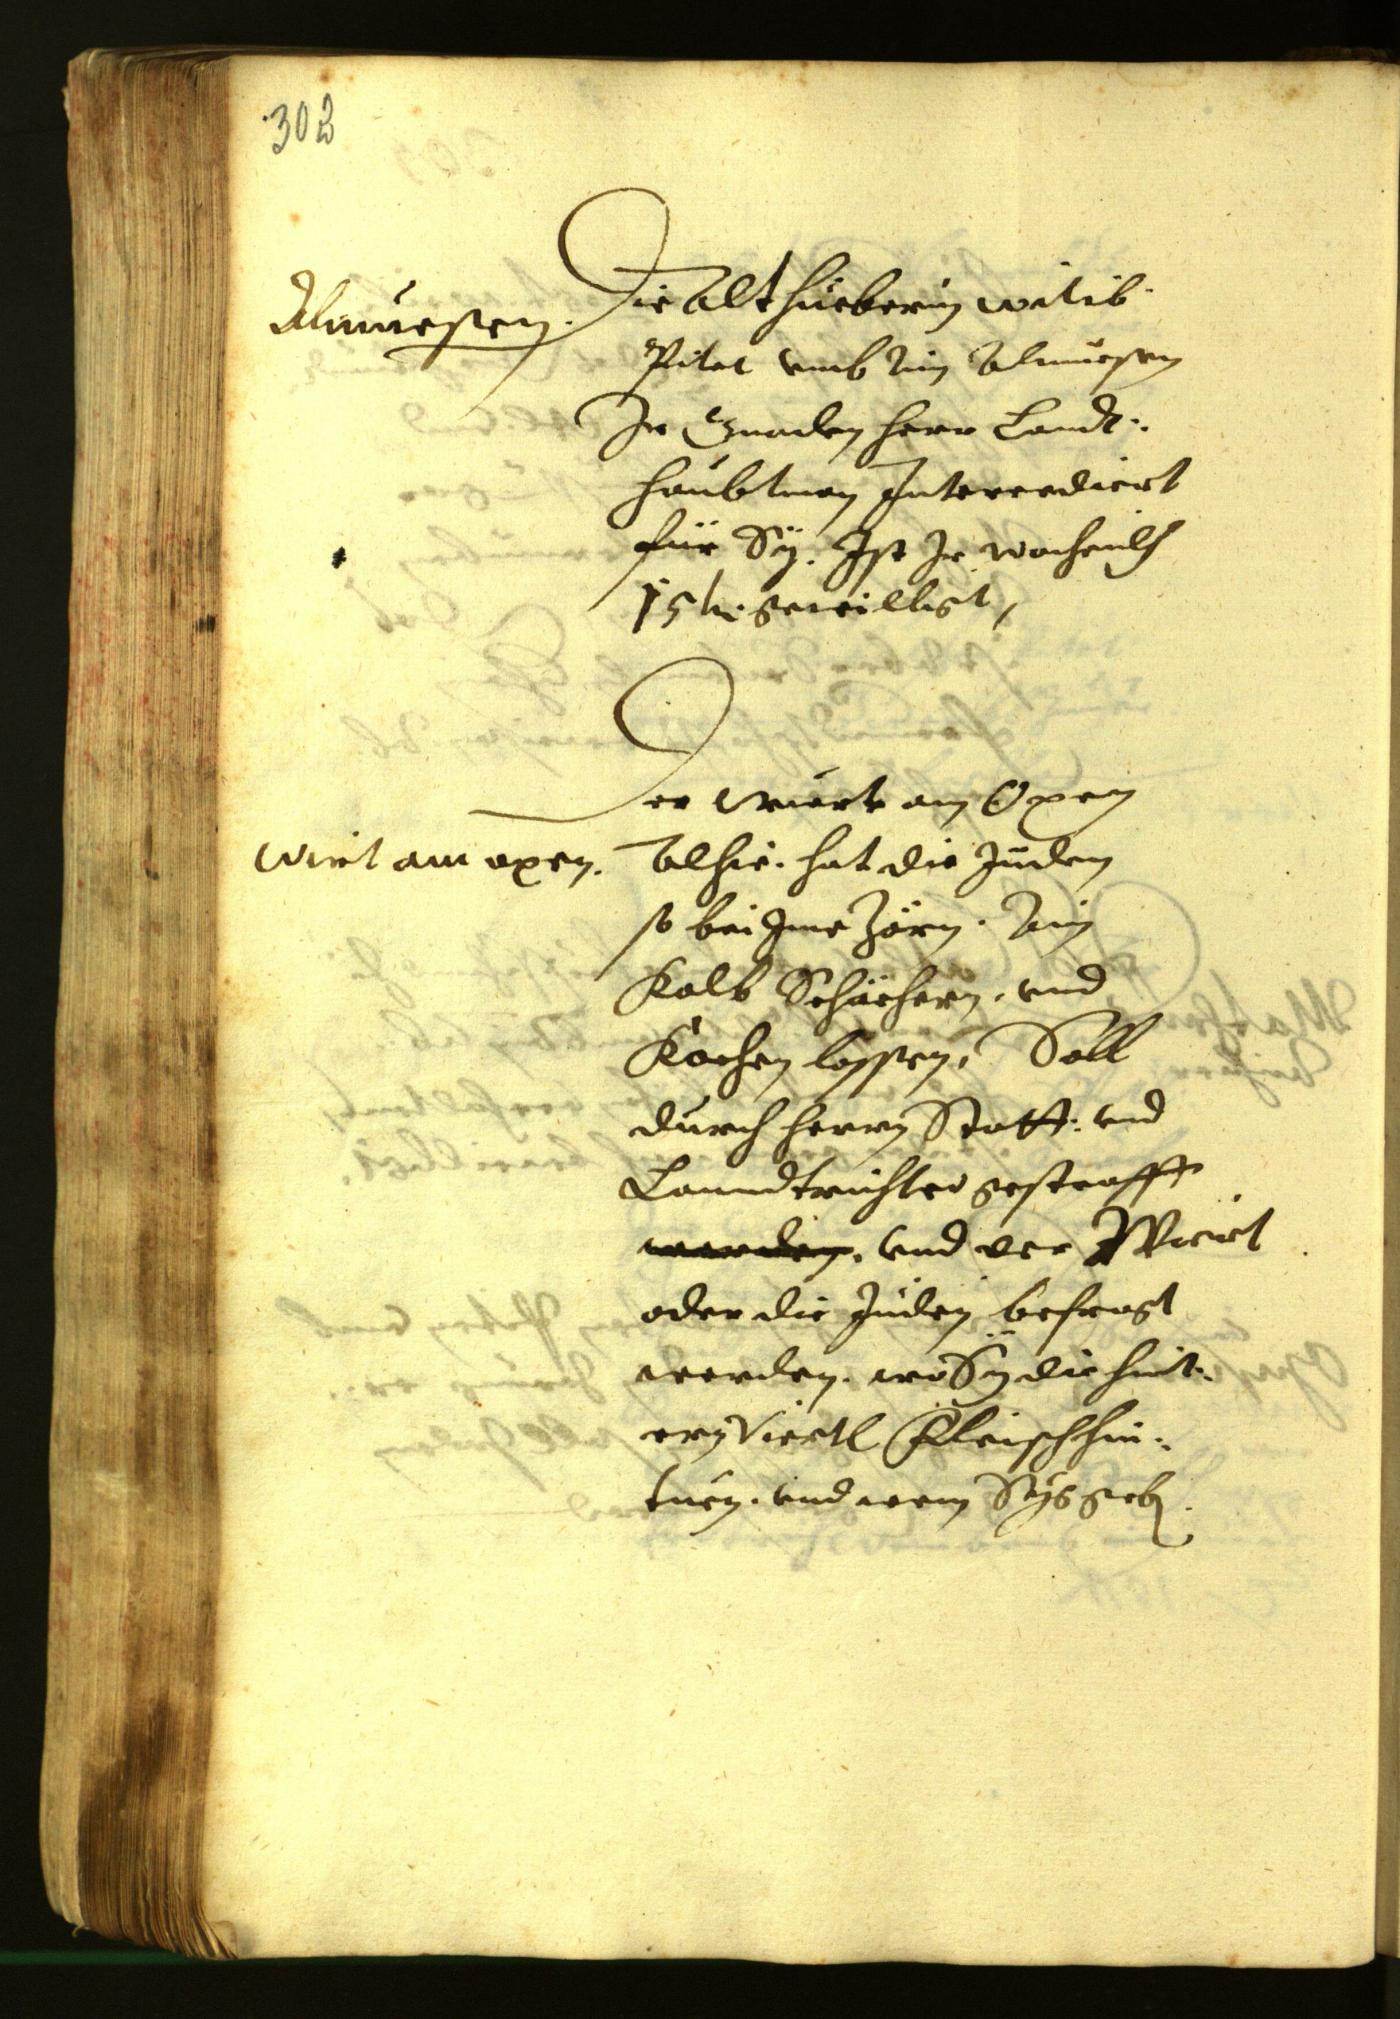 302
Almuesen.
Die Alt Hueberin witib.
Pitet vmb Ain Almuesen
Ir Gnaden Herr Landt-
haubtman Intercediert
für Sÿ. Ist Ir wochenlich
15 kr. gewilligt,
Wirt am oxen.
Der Wiert am Oxen
Alhie. hat die Juden
so bei Ime Zörn. Ain
Kalb Schächern. vnd
Kochen lassen. Soll
durch Herrn Statt: vnd
Lanndtrichter gestrafft
werden. vnd der Wiert
oder die Juden befragt
werden. wo Sÿ die hint-
ern Viertl Fleisch hin-
tuen. vnd wem Sÿs geben.